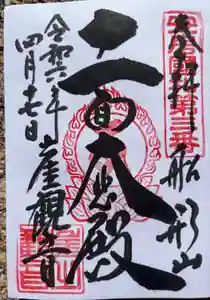 奉拝
船形山
十一面大悲殿
崖観音
令和六年
四月十七日